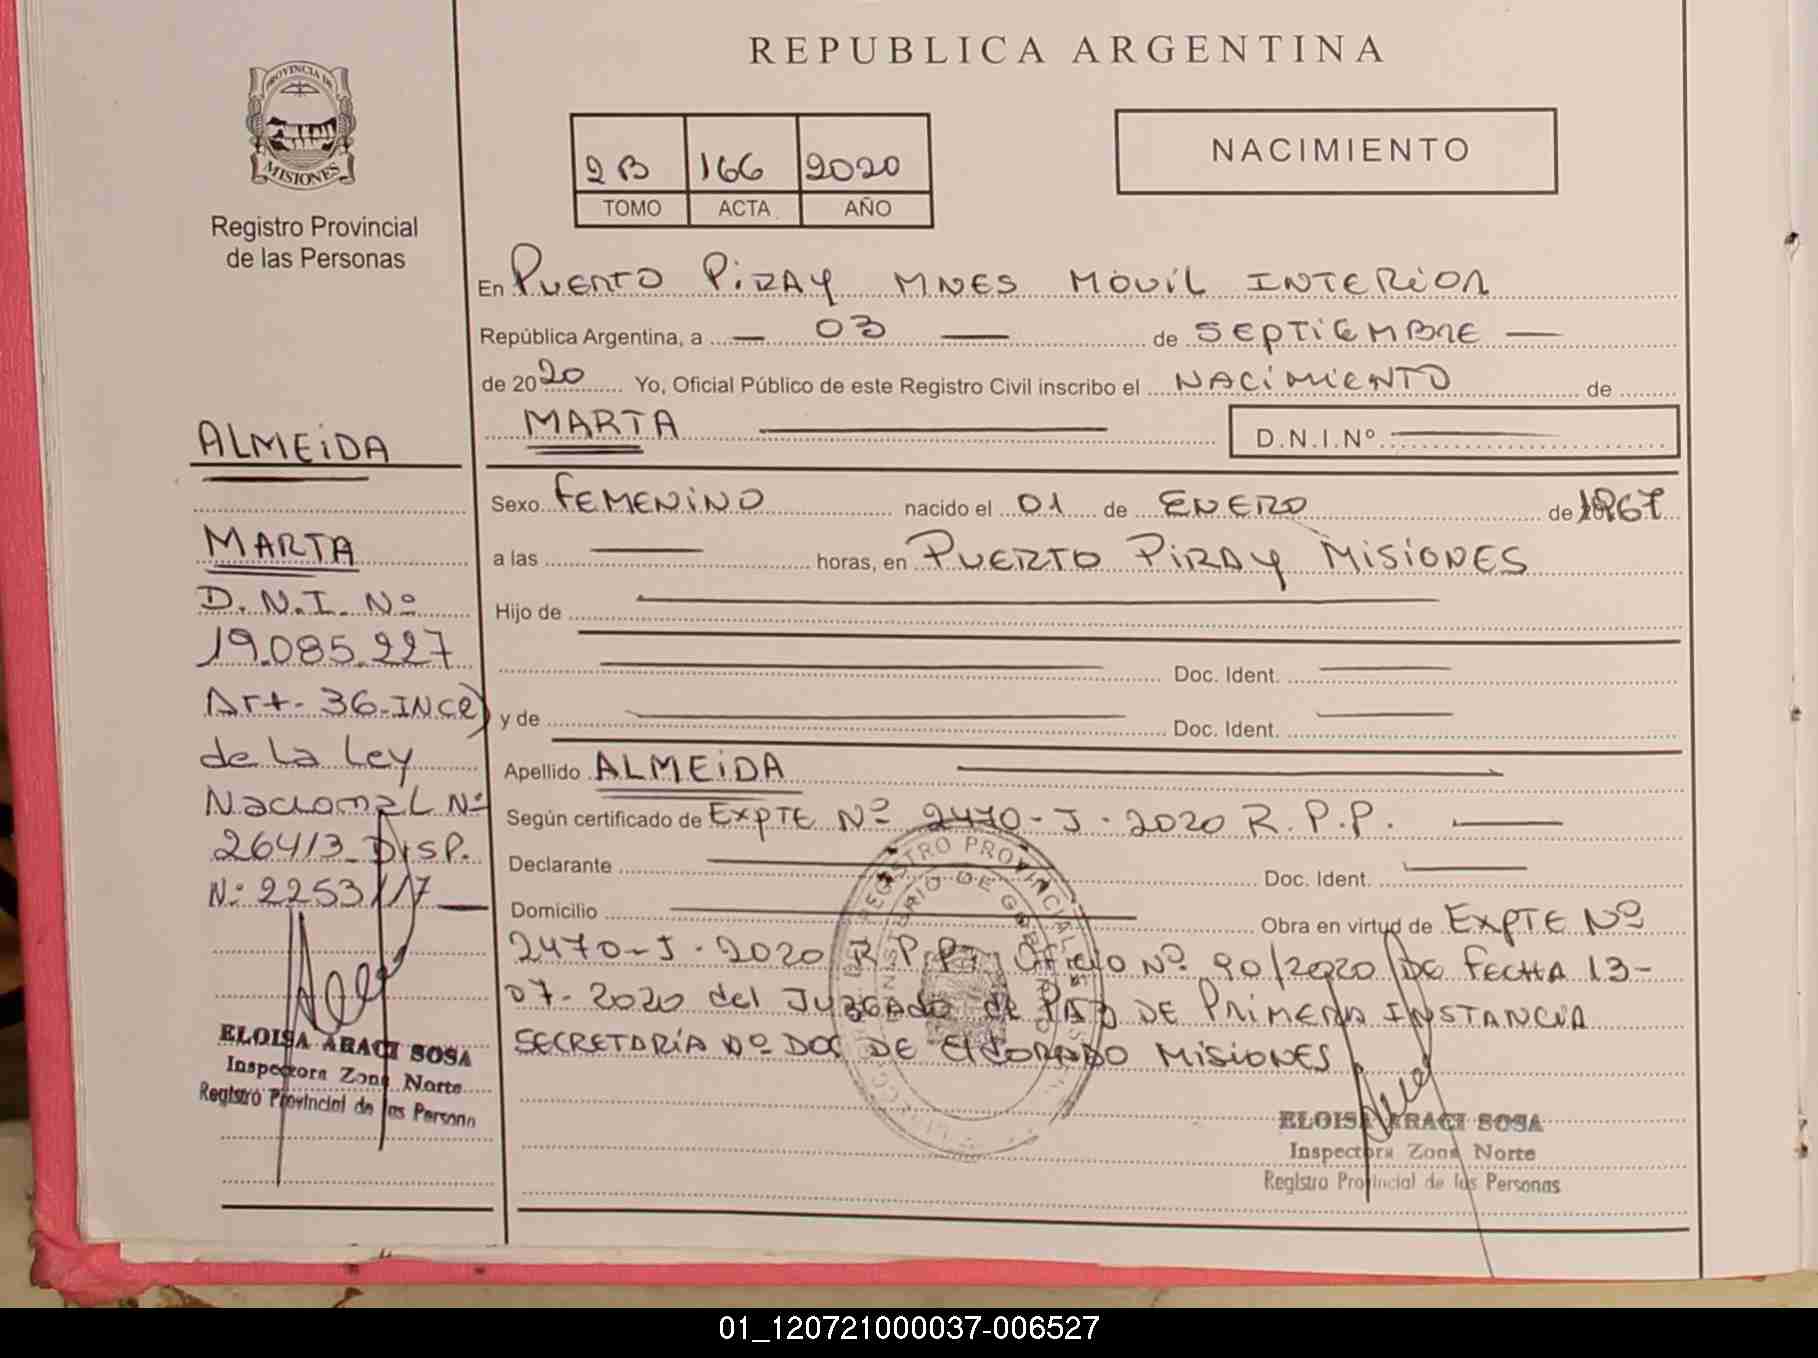 REPUBLICA ARGENTINA
PROVINCIA DE
MISIONES
Registro Provincial
de las Personas
2B 166 2020
TOMO ACTA AÑO
NACIMIENTO
En PUERTO PiRAY MNES MOVIL INTERiOR
República Argentina, a — 03 — de SEPTiEMBRE —
de 2020 Yo, Oficial Público de este Registro Civil inscribo el NACiMiENTO de
MARTA —
D.N.I.Nº —
Sexo FEMENiNO nacido el 01 de ENERO de 1967
a las — horas, en PUERTO PiRAY MiSiONES
Hijo de —
— Doc. Ident. —
y de — Doc. Ident. —
Apellido ALMEiDA —
Según certificado de EXPTE Nº 2470-J-2020 R.P.P. —
Declarante — Doc. Ident. —
Domicilio — Obra en virtud de EXPTE Nº
2470-J-2020 R.P.P. Oficio Nº 90/2020 DE FECHA 13-
07-2020 del JUZGADO de PAZ DE PRIMERA INSTANCIA
SECRETARÍA Nº DOS DE ElDORADO MiSiONES
ELOISA ARACI SOSA
Inspectora Zona Norte
Registro Provincial de las Personas
ALMEiDA
MARTA
D.N.I. Nº
19.085.227
Art. 36-INC e)
de La Ley
Nacional Nº
26413 DISP.
Nº 2253/17 —
ELOISA ARACI SOSA
Inspectora Zona Norte
Registro Provincial de las Persona
REGISTRO PROVINCIAL
MINISTERIO DE GOBIERNO
01_120721000037-006527